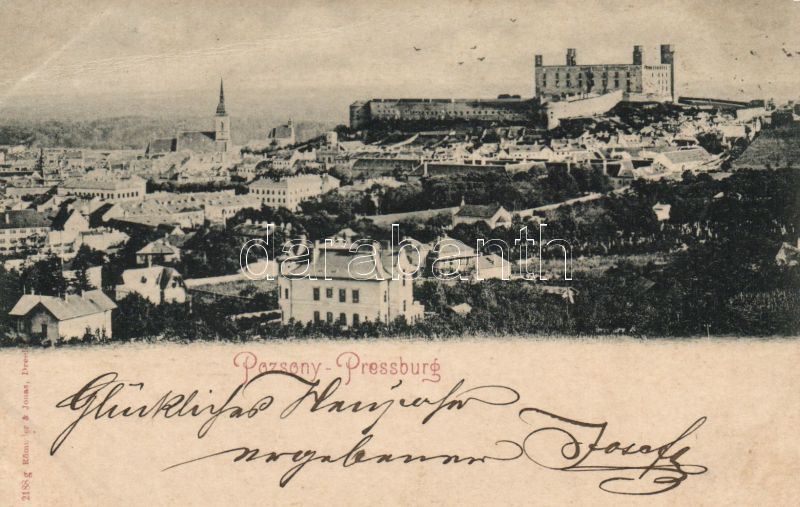 darabanth
Pozsony-Pressburg
Glückliches Neujahr
ergebener Josefa
2188 g Römmler & Jonas, Dresd